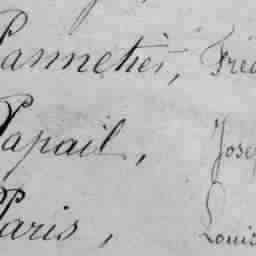 Pannetier, Fréd
Papail, Josep
Paris, Louis